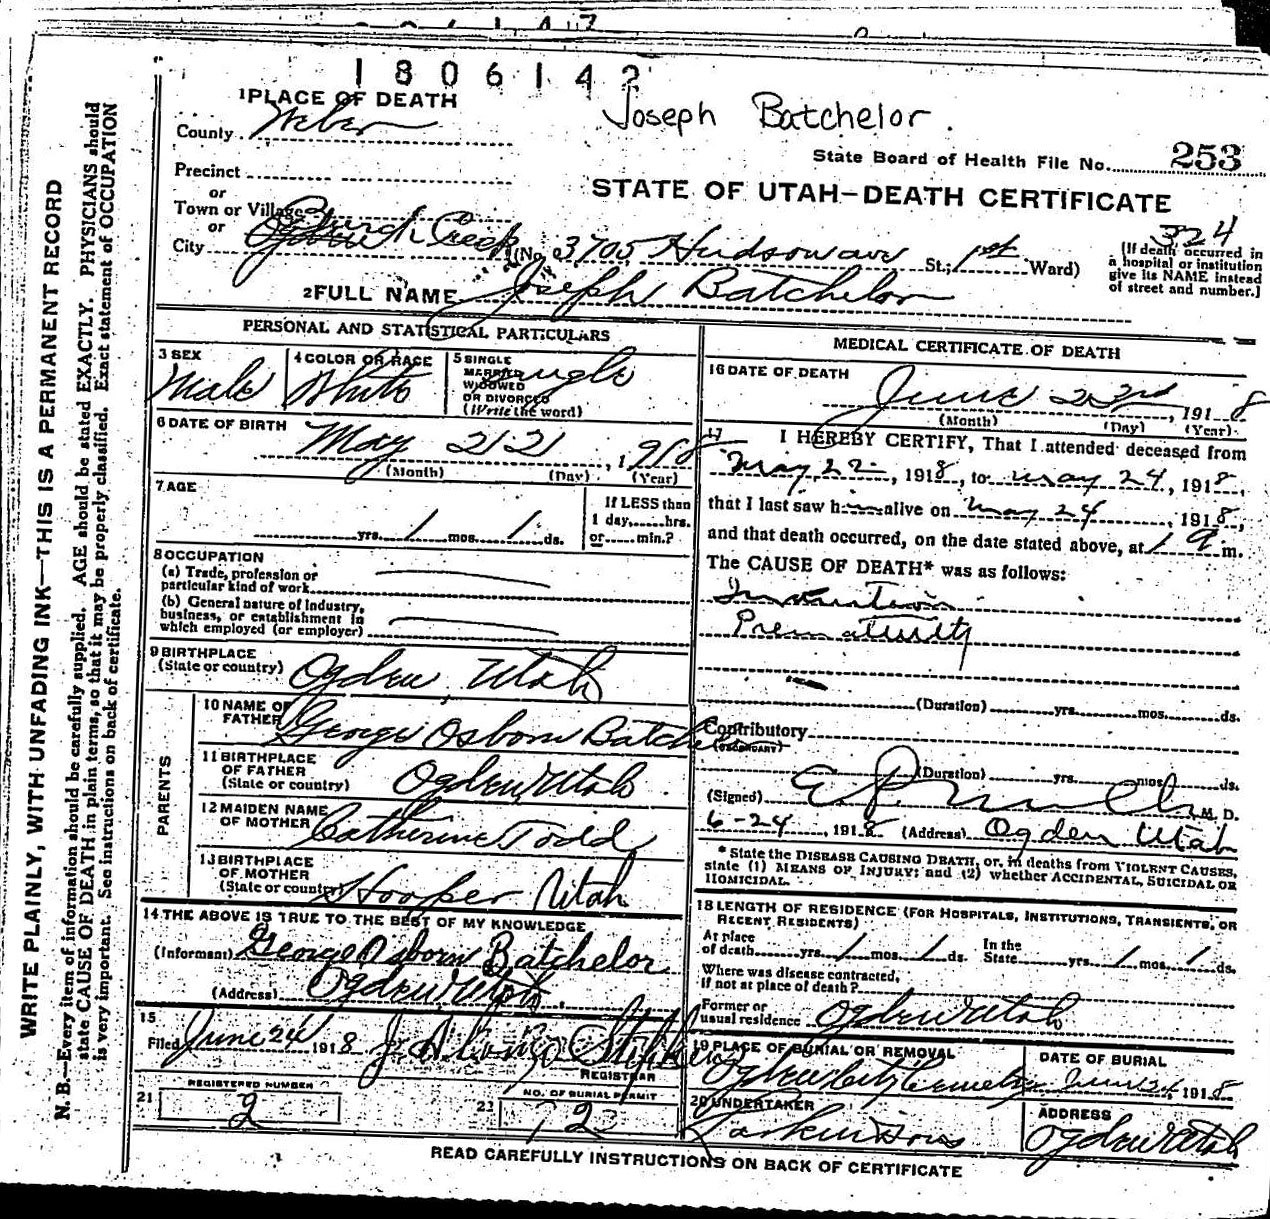 1806142
1 PLACE OF DEATH
Joseph Batchelor.
County Weber
State Board of Health File No. 253
Precinct
or
STATE OF UTAH—DEATH CERTIFICATE
Town or Village Burch Creek
or
324
City Ogden (No. 3705 Hudson ave St.; 1st Ward)
(If death occurred in
a hospital or institution
give its NAME instead
of street and number.)
2 FULL NAME Joseph Batchelor
PERSONAL AND STATISTICAL PARTICULARS
3 SEX
Male
4 COLOR OR RACE
White
5 SINGLE
MARRIED
WIDOWED
OR DIVORCED
(Write the word)
Single
6 DATE OF BIRTH
May 22 1918
(Month) (Day) (Year)
7 AGE
yrs. 1 mos. 1 ds.
If LESS than
1 day, hrs.
or min.?
8 OCCUPATION
(a) Trade, profession or
particular kind of work
(b) General nature of industry,
business, or establishment in
which employed (or employer)
9 BIRTHPLACE
(State or country) Ogden, Utah
PARENTS
10 NAME OF
FATHER George Osborn Batchelor
11 BIRTHPLACE
OF FATHER
(State or country) Ogden Utah
12 MAIDEN NAME
OF MOTHER Catherine Todd
13 BIRTHPLACE
OF MOTHER
(State or country) Hooper Utah
14 THE ABOVE IS TRUE TO THE BEST OF MY KNOWLEDGE
(Informant) George Osborn Batchelor
(Address) Ogden Utah
15
Filed June 24 1918 J Alonzo
REGISTRAR
REGISTERED NUMBER
21 2
NO. OF BURIAL PERMIT
22 72
MEDICAL CERTIFICATE OF DEATH
16 DATE OF DEATH
June 23rd, 1918
(Month) (Day) (Year)
17 I HEREBY CERTIFY, That I attended deceased from
May 22, 1918, to May 24, 1918,
that I last saw him alive on May 24, 1918,
and that death occurred, on the date stated above, at 1 a m.
The CAUSE OF DEATH* was as follows:
Inanition
Prematurity
(Duration) yrs. mos. ds.
Contributory
(SECONDARY)
(Duration) yrs. mos. ds.
(Signed) E. P. Mills, M. D.
6-24, 1918 (Address) Ogden Utah
* State the DISEASE CAUSING DEATH, or, in deaths from VIOLENT CAUSES,
state (1) MEANS OF INJURY; and (2) whether ACCIDENTAL, SUICIDAL OR
HOMICIDAL.
18 LENGTH OF RESIDENCE (FOR HOSPITALS, INSTITUTIONS, TRANSIENTS, OR
RECENT RESIDENTS)
At place
of death yrs. 1 mos. 1 ds. In the
State yrs. 1 mos. 1 ds.
Where was disease contracted,
if not at place of death?
Former or
usual residence Ogden Utah
19 PLACE OF BURIAL OR REMOVAL
Ogden City Cemetery
DATE OF BURIAL
June 24, 1918
20 UNDERTAKER
Larkin &amp; Sons
ADDRESS
Ogden Utah
READ CAREFULLY INSTRUCTIONS ON BACK OF CERTIFICATE
WRITE PLAINLY, WITH UNFADING INK—THIS IS A PERMANENT RECORD
N. B.—Every item of information should be carefully supplied. AGE should be stated EXACTLY. PHYSICIANS should
state CAUSE OF DEATH in plain terms, so that it may be properly classified. Exact statement of OCCUPATION
is very important. See instructions on back of certificate.